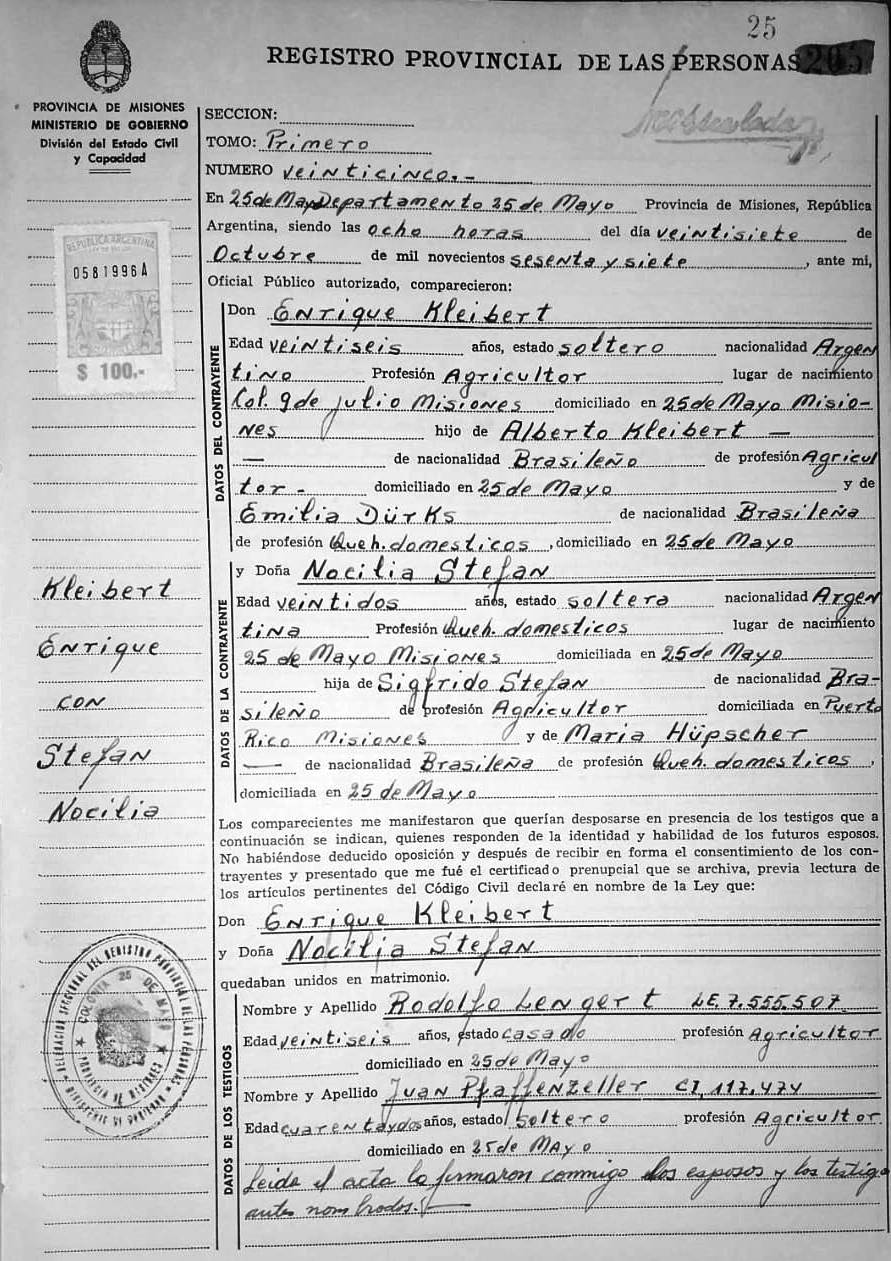 25
REGISTRO PROVINCIAL DE LAS PERSONAS 205
PROVINCIA DE MISIONES
MINISTERIO DE GOBIERNO
División del Estado Civil
y Capacidad
SECCION:
TOMO: Primero
NUMERO veinticinco.-
En 25 de Mayo Departamento 25 de Mayo Provincia de Misiones, República
Argentina, siendo las ocho horas del día veintisiete de
Octubre de mil novecientos sesenta y siete, ante mi,
Oficial Público autorizado, comparecieron:
REPUBLICA ARGENTINA
0581996A
$ 100.-
DATOS DEL CONTRAYENTE
Don Enrique Kleibert
Edad veintiseis años, estado soltero nacionalidad Argen
tino Profesión Agricultor lugar de nacimiento
Col. 9 de julio Misiones domiciliado en 25 de Mayo Misio-
nes hijo de Alberto Kleibert —
— de nacionalidad Brasileño de profesión Agricul
tor - domiciliado en 25 de Mayo y de
Emilia Dürks de nacionalidad Brasileña
de profesión Queh. domesticos, domiciliado en 25 de Mayo
DATOS DE LA CONTRAYENTE
y Doña Nocilia Stefan
Edad veintidos años, estado soltera nacionalidad Argen
tina Profesión Queh. domesticos lugar de nacimiento
25 de Mayo Misiones domiciliada en 25 de Mayo
hija de Sigfrido Stefan de nacionalidad Bra-
sileño de profesión Agricultor domiciliada en Puerto
Rico Misiones y de Maria Hüpscher
— de nacionalidad Brasileña de profesión Queh. domesticos,
domiciliada en 25 de Mayo
Kleibert
Enrique
con
Stefan
Nocilia
Los comparecientes me manifestaron que querían desposarse en presencia de los testigos que a
continuación se indican, quienes responden de la identidad y habilidad de los futuros esposos.
No habiéndose deducido oposición y después de recibir en forma el consentimiento de los con-
trayentes y presentado que me fué el certificado prenupcial que se archiva, previa lectura de
los artículos pertinentes del Código Civil declaré en nombre de la Ley que:
Don Enrique Kleibert
y Doña Nocilia Stefan
quedaban unidos en matrimonio.
DELEGACION SECCIONAL DEL REGISTRO PROVINCIAL DE LAS PERSONAS
COLONIA 25 DE MAYO
PROVINCIA DE MISIONES
MINISTERIO DE GOBIERNO
DATOS DE LOS TESTIGOS
Nombre y Apellido Rodolfo Lengert LE. 7.555.507
Edad veintiseis años, estado casado profesión Agricultor
domiciliado en 25 de Mayo
Nombre y Apellido Juan Pfaffenzeller CI, 117.474
Edad cuarentaydos años, estado soltero profesión Agricultor
domiciliado en 25 de Mayo
Leida el acta la firmaron conmigo los esposos y los testigo
antes nombrados.